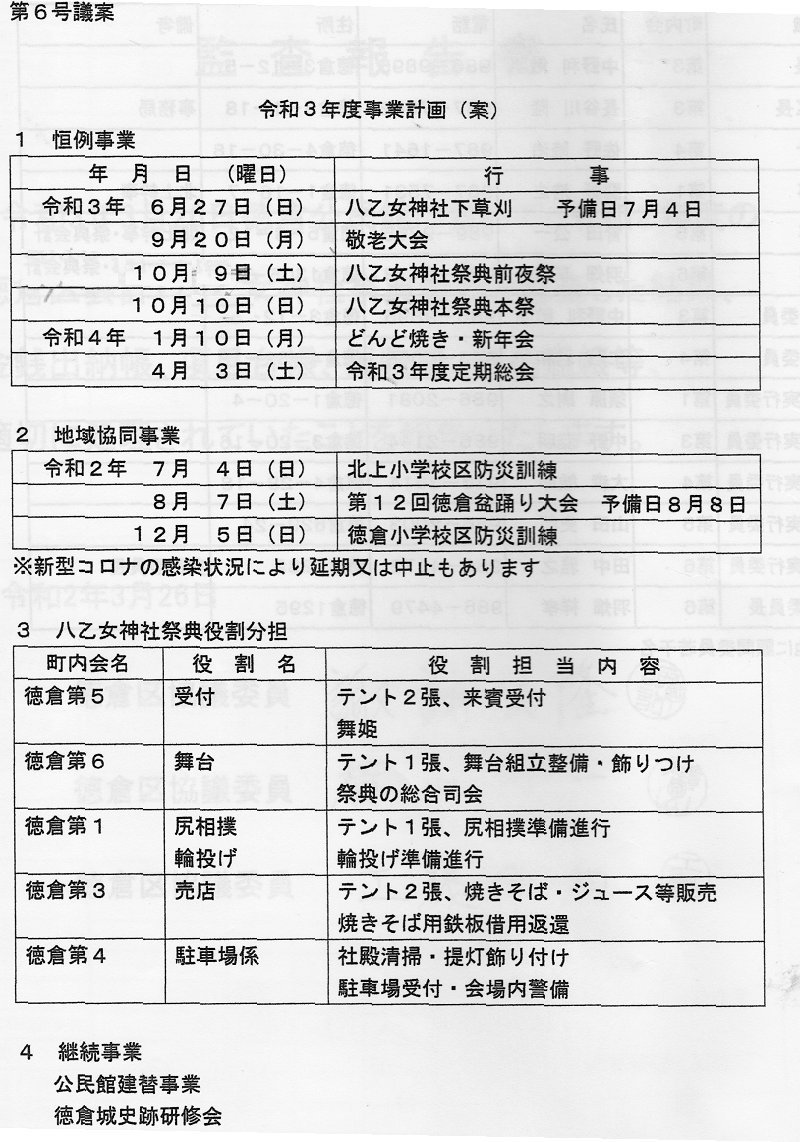 第６号議案
令和３年度事業計画（案）
１　恒例事業
年　月　日　（曜日）　行　事
令和３年　６月２７日（日）　八乙女神社下草刈　予備日７月４日
９月２０日（月）　敬老大会
１０月　９日（土）　八乙女神社祭典前夜祭
１０月１０日（日）　八乙女神社祭典本祭
令和４年　１月１０日（月）　どんど焼き・新年会
４月　３日（土）　令和３年度定期総会
２　地域協同事業
令和２年　７月　４日（日）　北上小学校区防災訓練
８月　７日（土）　第１２回徳倉盆踊り大会　予備日８月８日
１２月　５日（日）　徳倉小学校区防災訓練
※新型コロナの感染状況により延期又は中止もあります
３　八乙女神社祭典役割分担
町内会名　役　割　名　役　割　担　当　内　容
徳倉第５　受付　テント２張、来賓受付
舞姫
徳倉第６　舞台　テント１張、舞台組立整備・飾りつけ
祭典の総合司会
徳倉第１　尻相撲　テント１張、尻相撲準備進行
輪投げ　輪投げ準備進行
徳倉第３　売店　テント２張、焼きそば・ジュース等販売
焼きそば用鉄板借用返還
徳倉第４　駐車場係　社殿清掃・提灯飾り付け
駐車場受付・会場内警備
４　継続事業
公民館建替事業
徳倉城史跡研修会